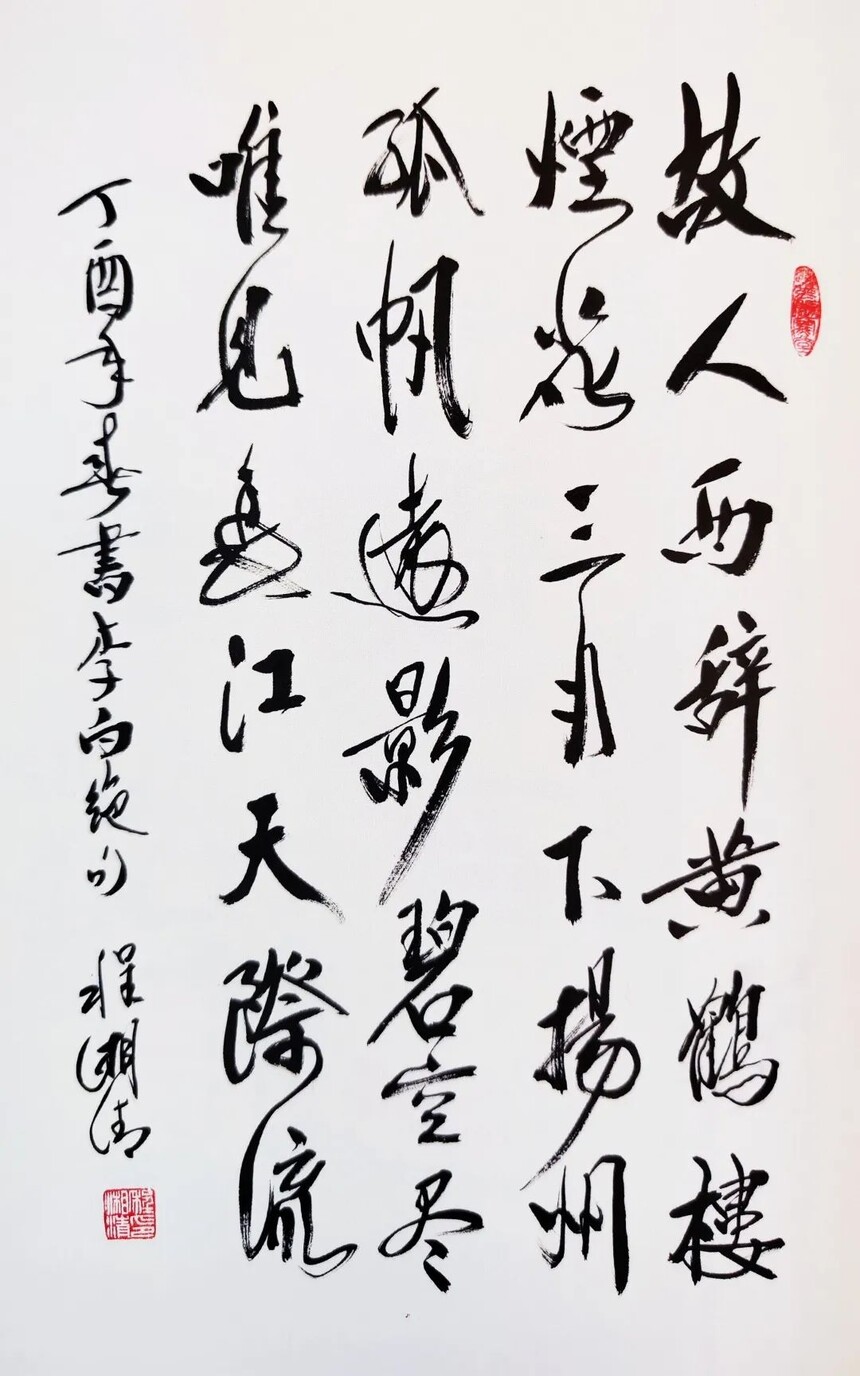 故人西辞黄鶴樓
煙花三月下揚州
孤帆遠影碧空尽
唯見長江天際流
丁酉年春書李白絶句 程湘清
程印湘清